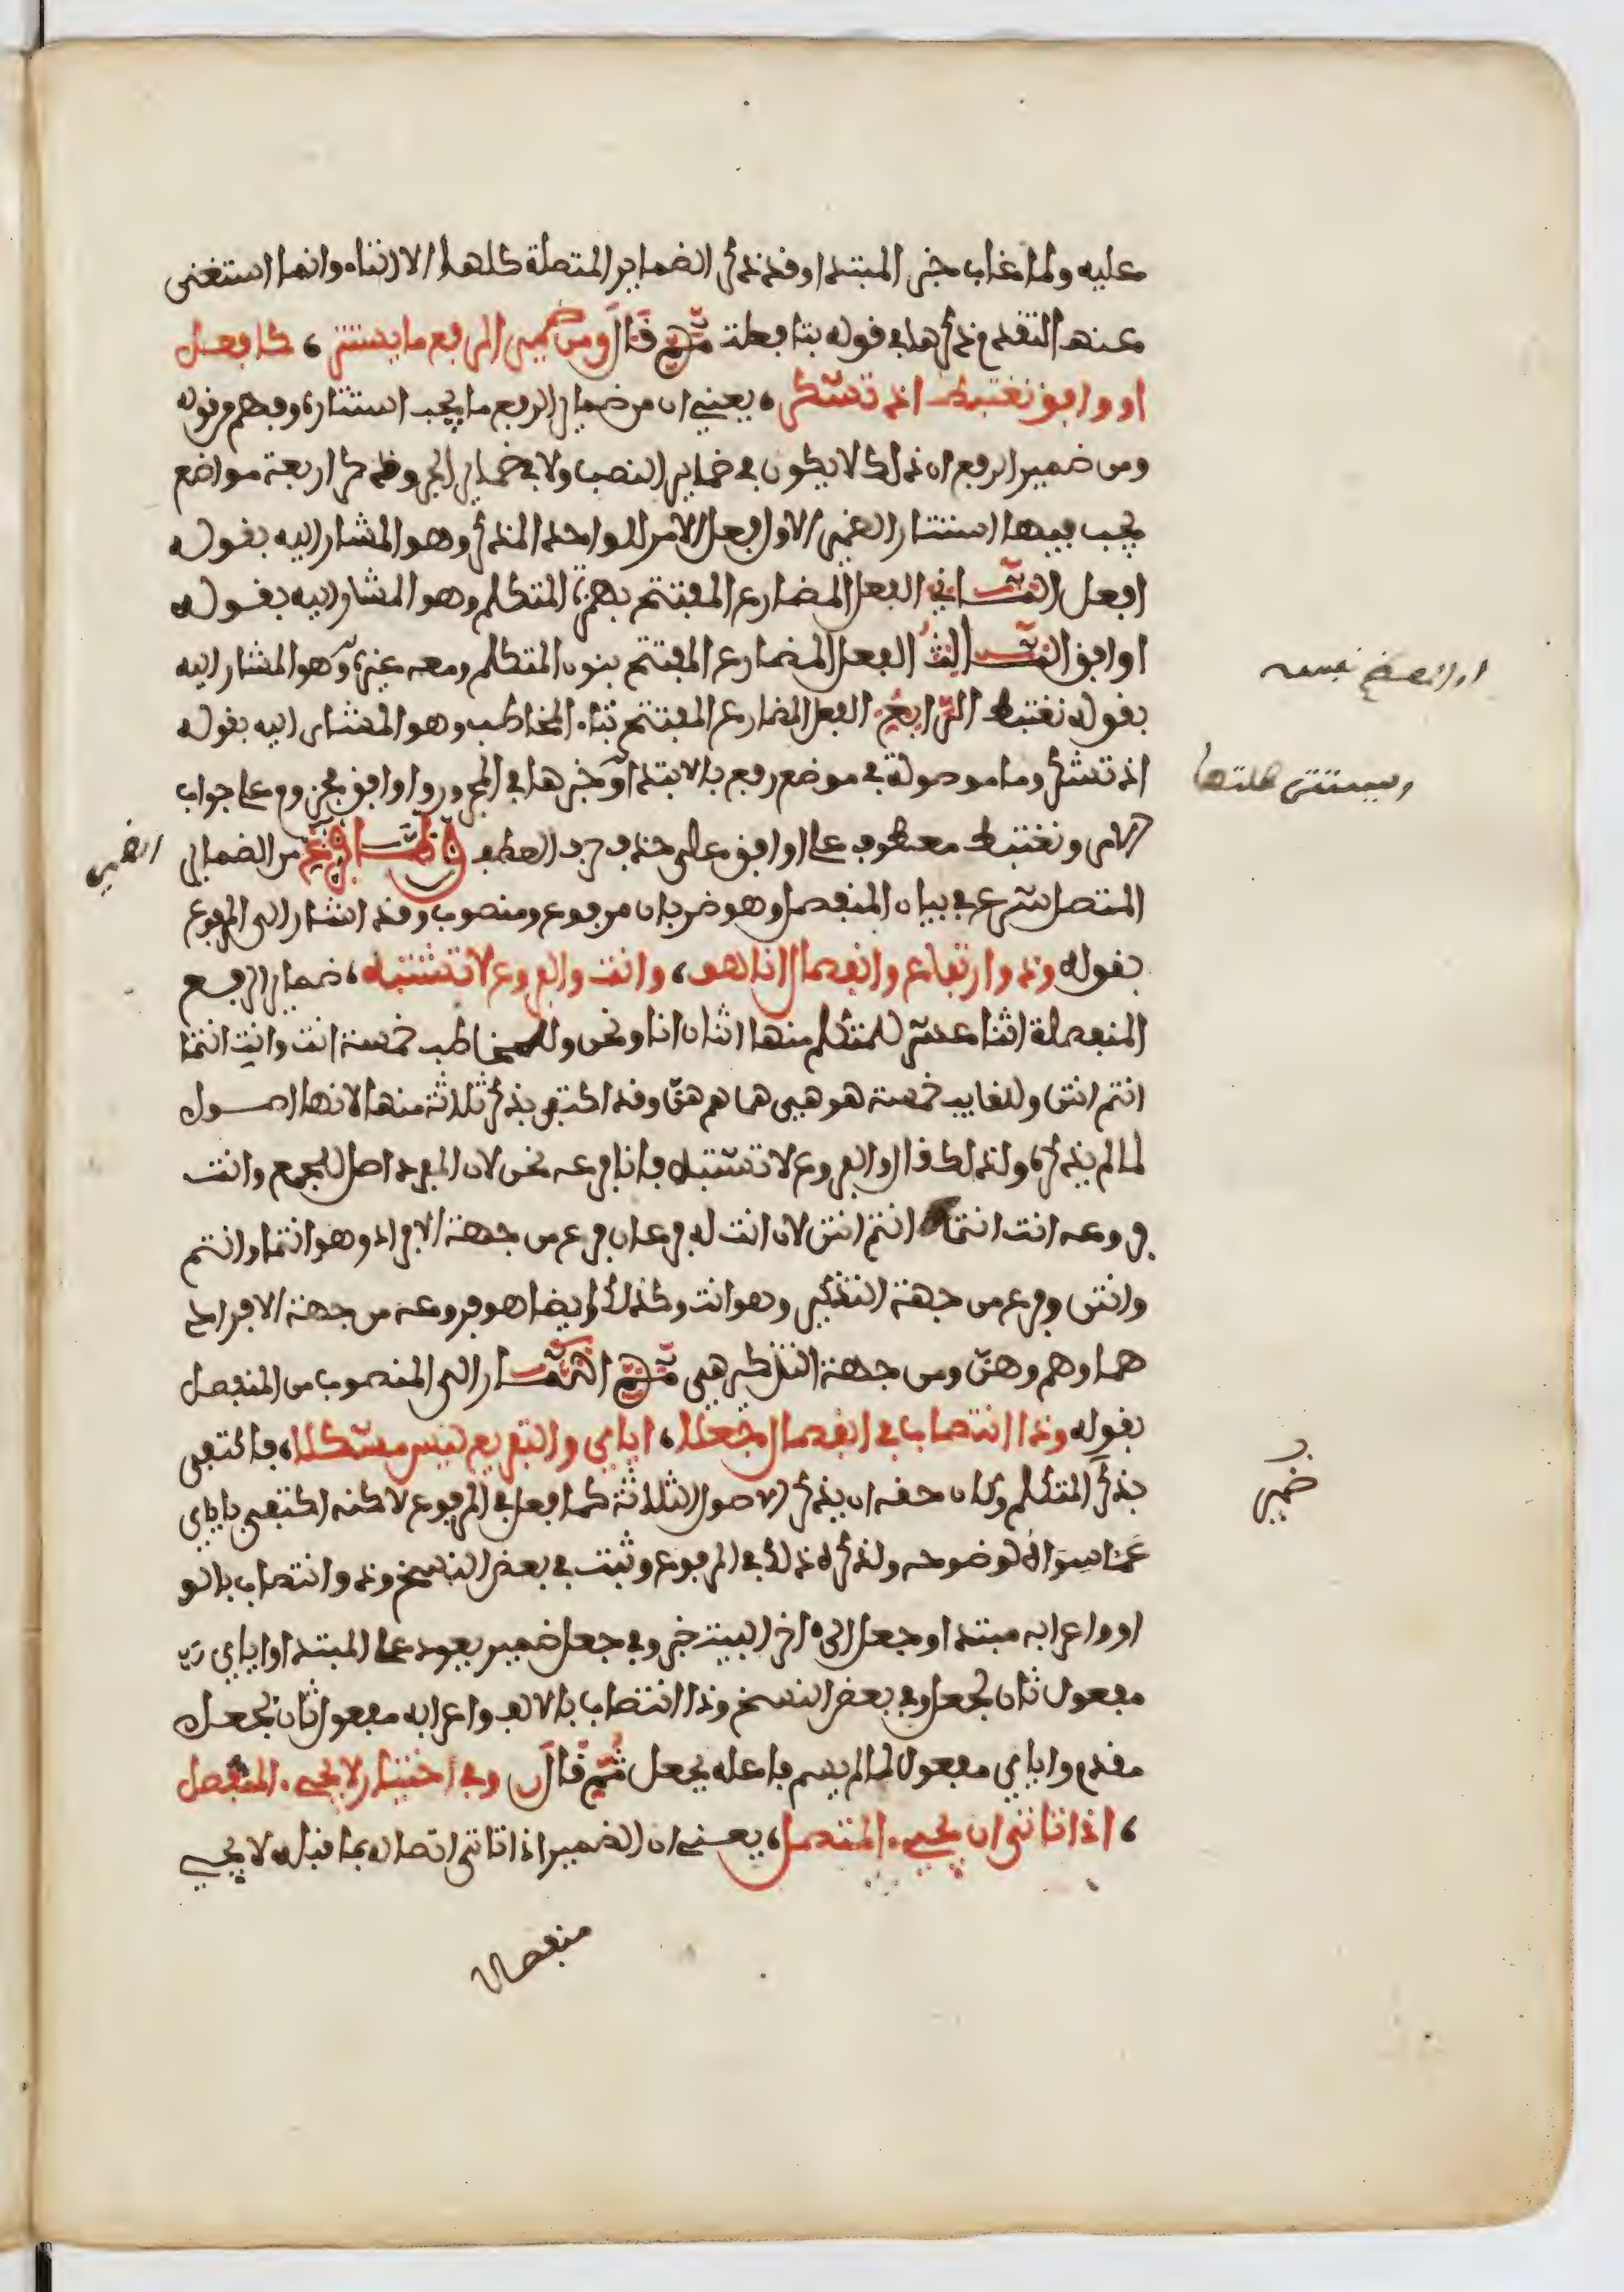 عليه ولما غاب خبر المبتدا وقد ذكر الضماير المتصلة كلها الا التاء وانما استغنى
عنها لتقدم ذكرها في قوله بتا فعلت ثم قال ومن ضمير الرفع ما يستتر ، كافعل
اوافق نغتبط اذ تشكر ، يعني ان من ضماير الرفع ما يجب استتاره وفهم من قوله
ومن ضمير الرفع ان ذلك لا يكون في ضماير النصب ولا في ضماير الجر وذكر اربعة مواضع
يجب فيها استتار الضمير الاول فعل الامر للواحد المذكر وهو المشار اليه بقوله
افعل الثاني الفعل المضارع المفتتح بهمزة المتكلم وهو المشار اليه بقوله
اوافق الثالث الفعل المضارع المفتتح بنون المتكلم ومعه غيره وهو المشار اليه
او المعظم نفسه
بقوله نغتبط الرابع الفعل المضارع المفتتح بتاء المخاطب وهو المشار اليه بقوله
اذ تشكر وما موصولة في موضع رفع بالابتدا وخبرها في المجرور واوافق مجزوم على جواب
ويستتر صلتها
الامر ونغتبط معطوف على اوافق على حذف حرف العطف ولما فرغ من الضماير
الضمير
المتصل شرع في بيان المنفصل وهو ضربان مرفوع ومنصوب وقد اشار الى المرفوع
بقوله وذو ارتفاع وانفصال انا هو ، وانت والفروع لا تشتبه ، ضماير الرفع
المنفصلة اثنا عشر للمتكلم منها اثنان انا ونحن وللمخاطب خمسة انت وانت انتما
انتم انتن وللغايب خمسة هو هي هما هم هن وقد اكتفى بذكر ثلاثة منها لانها اصول
لما لم يذكره ولذلك قال والفروع لا تشتبه فانا فرعه نحن لان المفرد اصل للجمع وانت
فروعه انت انتما انتم انتن لان انت له فرعان فرع من جهة الافراد وهو انتما وانتم
وانتن وفرع من جهة التذكير وهو انت وكذلك ايضا هو فروعه من جهة الافراد
هما وهم وهن ومن جهة التذكير هي ثم اشار الى المنصوب من المنفصل
بقوله وذا انتصاب في انفصال جعلا ، اياي والتفريع ليس مشكلا ، فاكتفى
بذكر المتكلم وكان حقه ان يذكر الاصول الثلاثة كما فعل في المرفوع لاكنه اكتفى باياي
ضمير
عما سواه لوضوحه ولذكره ذلك في المرفوع وثبت في بعض النسخ وذو انتصاب بالو
او واعرابه مبتدا وجعل الى اخر البيت خبر وفي جعل ضمير يعود على المبتدا واياي
مفعول ثان لجعل وفي بعض النسخ وذا انتصاب بالالف واعرابه مفعول ثان لجعل
مقدم واياي مفعول لما لم يسم فاعله بجعل ثم قال وفي اختيار لا يجيء المنفصل
، اذا تاتى ان يجيء المتصل ، يعني ان الضمير اذا تاتى اتصاله بما قبله لا يجيء
منفصلا